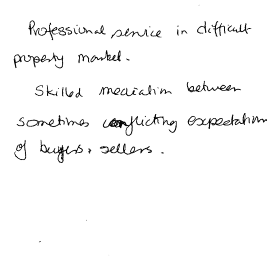 Professional service in difficult
property market.
Skilled mediation between
sometimes conflicting expectation
of buyers & sellers.